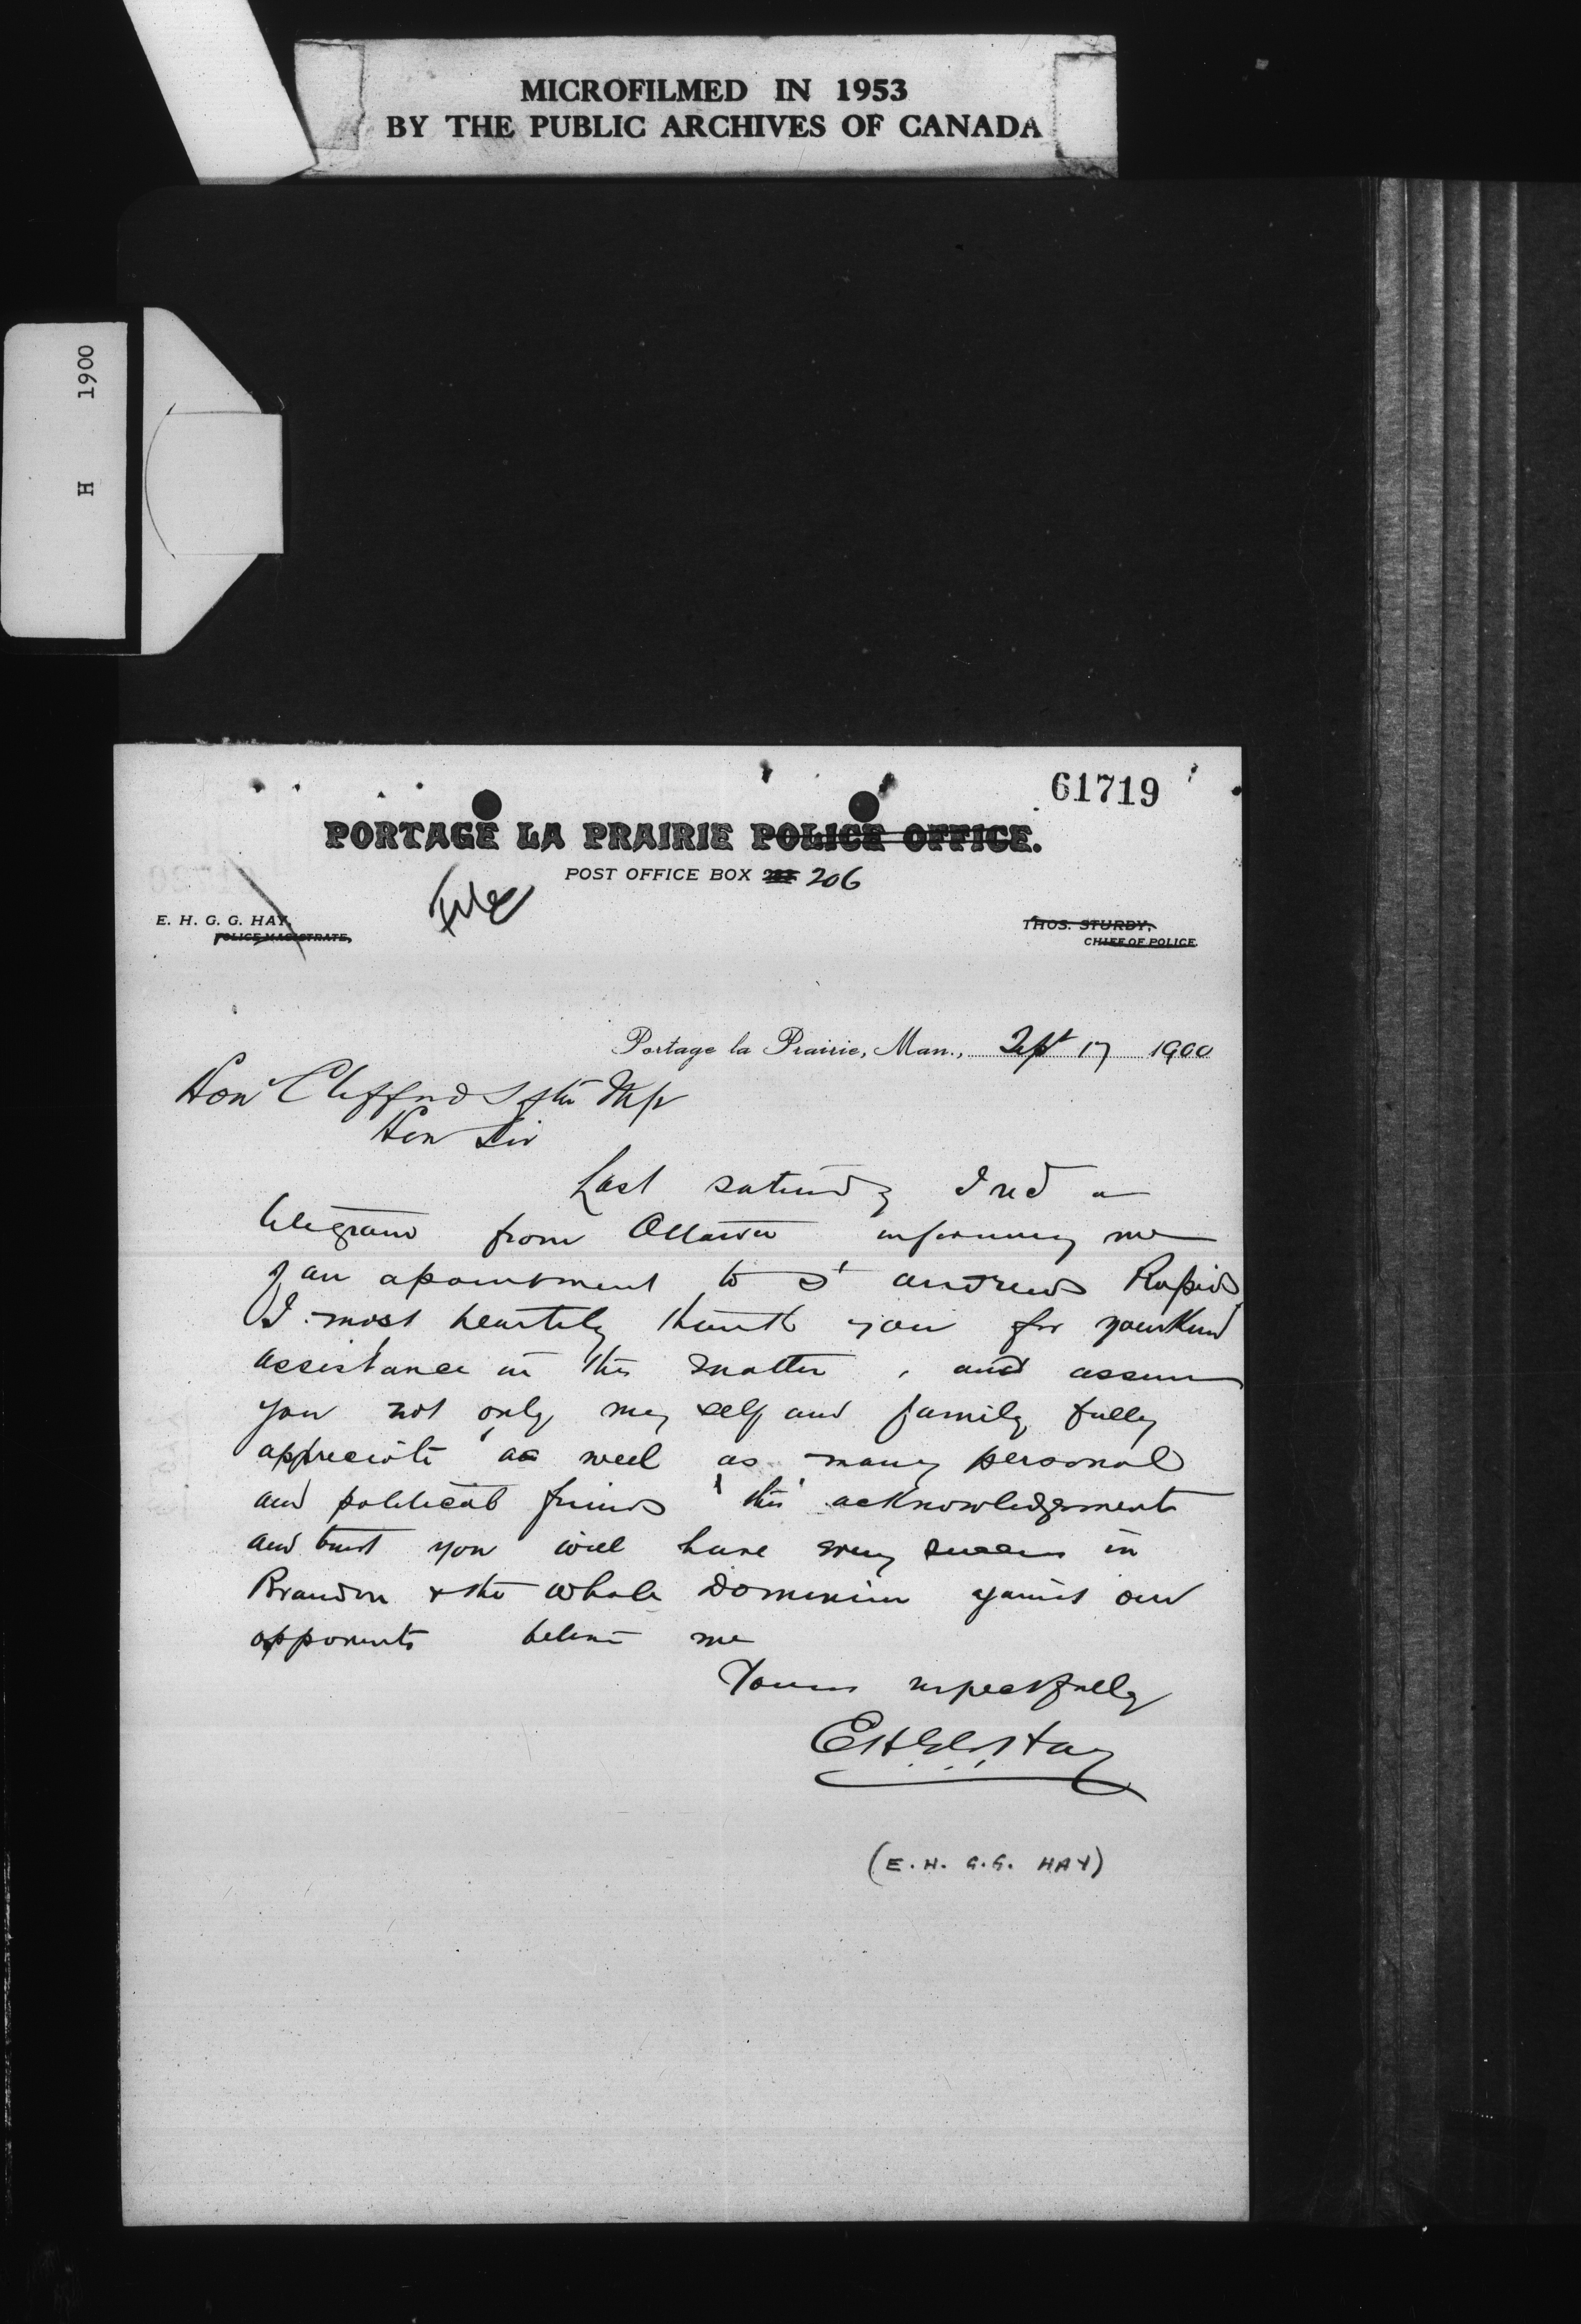 MICROFILMED IN 1953
BY THE PUBLIC ARCHIVES OF CANADA
H 1900
61719
PORTAGE LA PRAIRIE POLICE OFFICE.
POST OFFICE BOX 206
File
E. H. G. G. HAY,
POLICE MAGISTRATE,
THOS. STURDY,
CHIEF OF POLICE
Portage la Prairie, Man., Sept 17 1900
Hon Clifford Sifton MP
Hon Sir
Last saturday I recd a
telegram from Ottawa informing me
of an apointment to St andrews Rapids
I most heartily thank you for your kind
assistance in this matter, and assure
you not only my self and family fully
appreciate as well as many personal
and political friends this acknowledgement
and trust you will have every success in
Brandon & the whole Dominion against our
opponents believe me
Yours respectfully
E H G G Hay
(E. H. G. G. HAY)